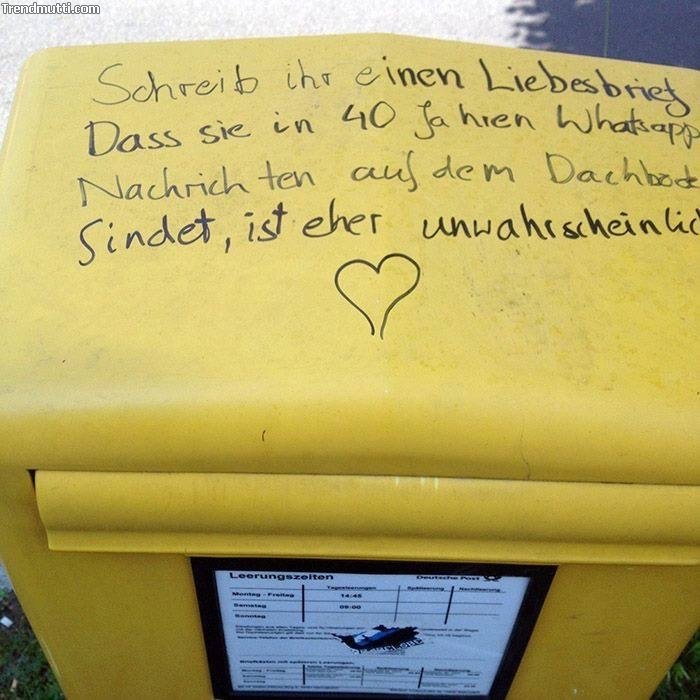 Trendmutti.com
Schreib ihr einen Liebesbrief
Dass sie in 40 Jahren Whatsapp
Nachrichten auf dem Dachbode
findet, ist eher unwahrscheinlic
Leerungszeiten
Deutsche Post
Tagesleerungen Spätleerung Nachtleerung
Montag - Freitag 14:45
Samstag 09:00
Sonntag
Briefkästen mit späteren Leerungen: